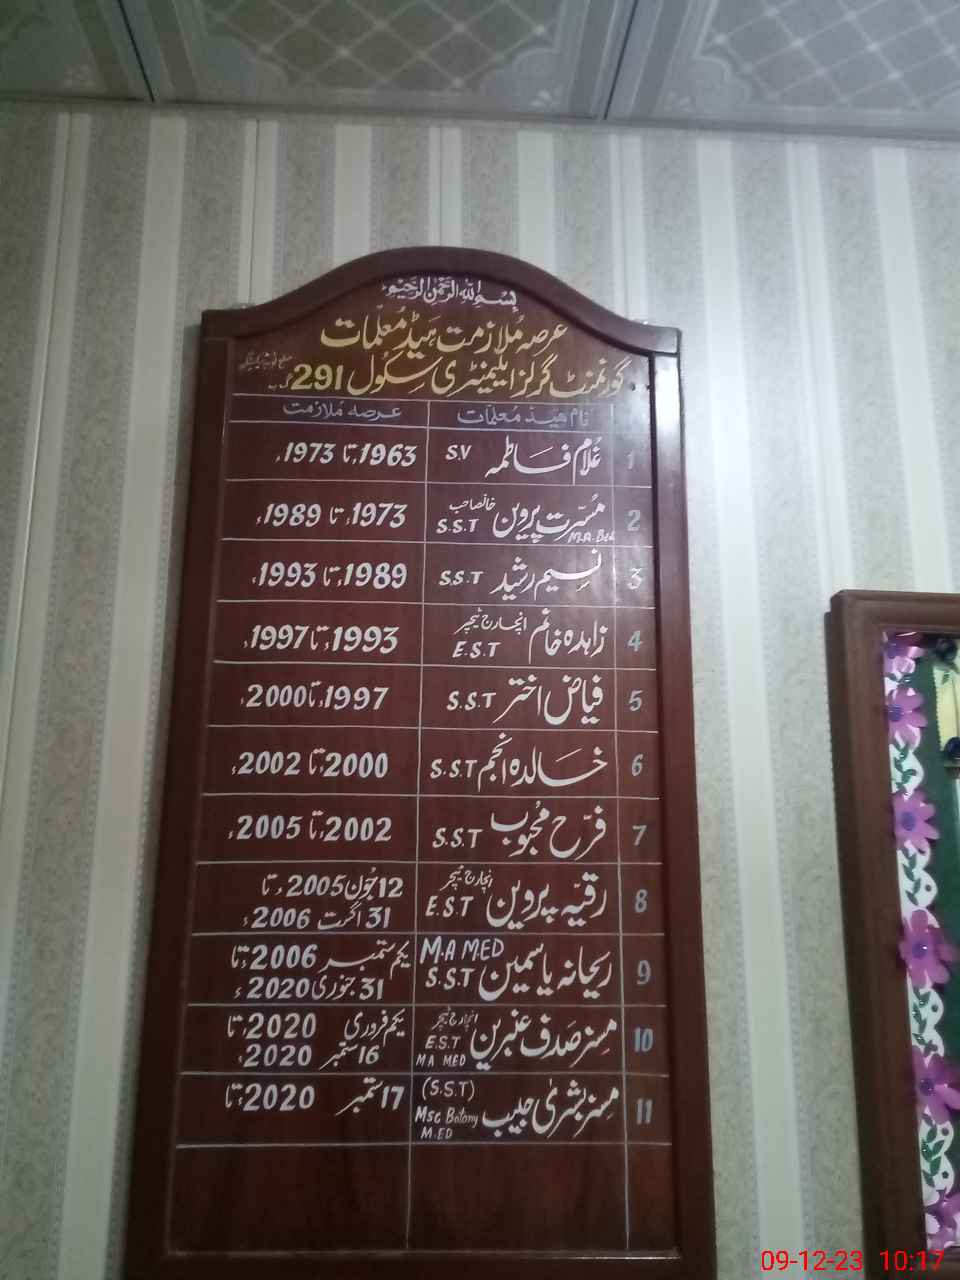 بسم اللہ الرحمن الرحیم
عرصہ ملازمت ہیڈ معلمات
گورنمنٹ گرلز ایلیمنٹری سکول 291 گ ب
نام ہیڈ معلمات عرصہ ملازمت
1 غلام فاطمہ S.V 1963ء تا 1973ء
2 مسرت پروین خان صاحب S.S.T M.A. Bed 1973ء تا 1989ء
3 نسیم رشید S.S.T 1989ء تا 1993ء
4 زاہدہ خانم انچارج ٹیچر E.S.T 1993ء تا 1997ء
5 فیاض اختر S.S.T 1997ء تا 2000ء
6 خالدہ انجم S.S.T 2000ء تا 2002ء
7 فرح محبوب S.S.T 2002ء تا 2005ء
8 رقیہ پروین انچارج ٹیچر E.S.T 12 جون 2005ء تا
31 اگست 2006ء
9 ریحانہ یاسمین M.A M.ED S.S.T یکم ستمبر 2006ء تا
31 جنوری 2020ء
10 مسز صدف عنبرین انچارج ٹیچر E.S.T M A MED یکم فروری 2020ء تا
16 ستمبر 2020ء
11 مسز بشریٰ حبیب (S.S.T) Msc Botany M.ED 17 ستمبر 2020ء تا
09-12-23 10:17